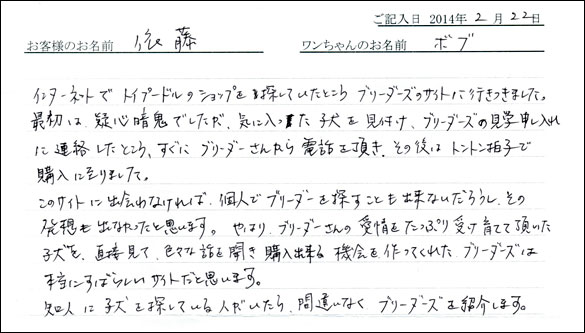 ご記入日 2014年 2 月 22日
お客様のお名前 佐藤 ワンちゃんのお名前 ボブ
インターネットで トイプードルのショップを探していたところ ブリーダーズのサイトに行きつきました。
最初は、疑心暗鬼でしたが、気に入った子犬を見付け、ブリーダーズの見学申し入れ
に連絡したところ、すぐに ブリーダーさんから 電話を頂き、その後は トントン拍子で
購入に至りまして。
このサイトに出会わなければ、個人でブリーダーを探すことも出来ないだろうし、その
発想も出なかったと思います。 やはり、ブリーダーさんの愛情をたっぷり受け育てて頂いた
子犬を、直接見て、色々な話を聞き 購入出来る 機会を作ってくれた ブリーダーズは
本当にすばらしいサイトだと思います。
知人に子犬を探している人がいたら、間違いなく ブリーダーズを紹介します。